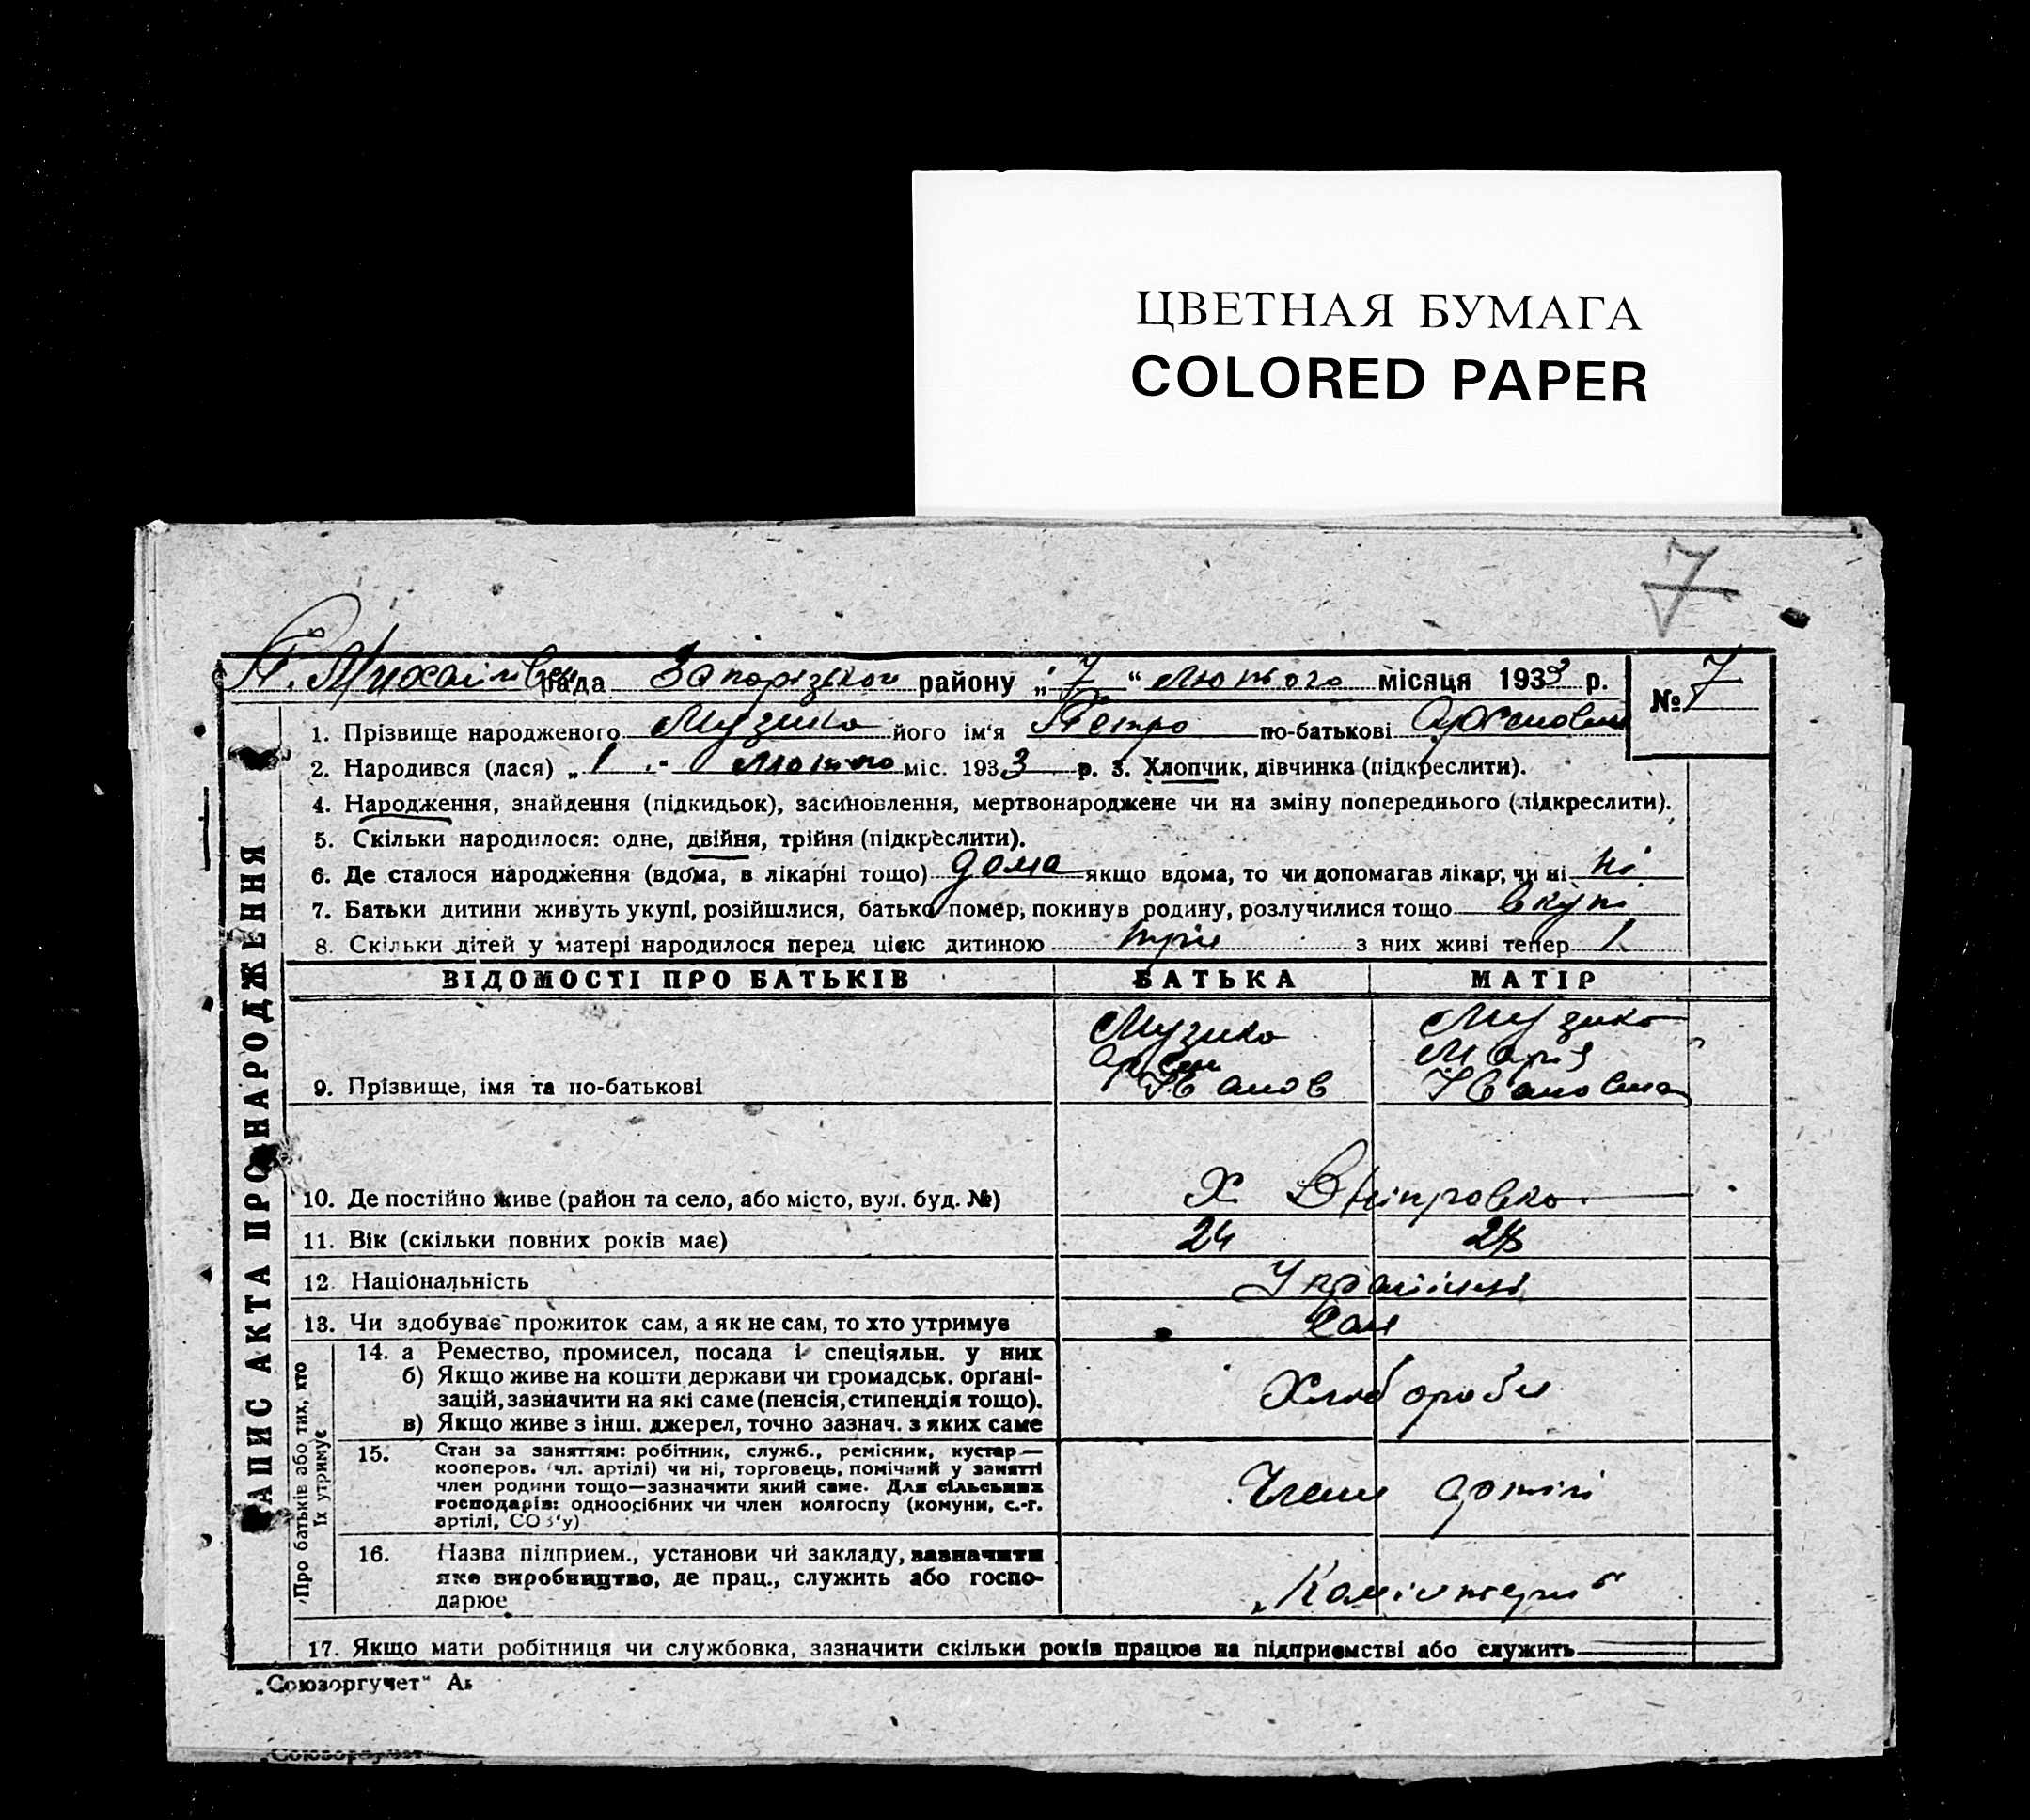 ЦВЕТНАЯ БУМАГА
COLORED PAPER
7
П. Михайлівськ рада Запорізького району „7“ Лютого місяця 1933 р.
№ 7
1. Прізвище народженого Музика його ім'я Петро по-батькові Арсенович
2. Народився (лася) „1“ Лютого міс. 1933 р. 3. Хлопчик, дівчинка (підкреслити).
4. Народження, знайдення (підкидьок), засиновлення, мертвонароджене чи на зміну попереднього (підкреслити).
5. Скільки народилося: одне, двійня, трійня (підкреслити).
6. Де сталося народження (вдома, в лікарні тощо) дома якщо вдома, то чи допомагав лікар, чи ні ні
7. Батьки дитини живуть укупі, розійшлися, батько помер, покинув родину, розлучилися тощо вкупі
8. Скільки дітей у матері народилося перед цією дитиною троє з них живі тепер 1
ЗАПИС АКТА ПРО НАРОДЖЕННЯ
ВІДОМОСТІ ПРО БАТЬКІВ БАТЬКА МАТІР
9. Прізвище, імя та по-батькові
Музика
Арсен
Іванов
Музика
Марія
Івановна
10. Де постійно живе (район та село, або місто, вул. буд. №) Х Дніпровка
11. Вік (скільки повних років має) 24 28
12. Національність Українці
13. Чи здобуває прожиток сам, а як не сам, то хто утримує Сам
Про батьків або тих, хто
їх утримує
14. а Ремество, промисел, посада і спеціяльн. у них
б) Якщо живе на кошти держави чи громадськ. орґані-
зацій, зазначити на які саме (пенсія, стипендія тощо).
в) Якщо живе з інш. джерел, точно зазнач. з яких саме
Хлібороби
15. Стан за заняттям: робітник, служб., ремісник, кустар—
кооперов. (чл. артілі) чи ні, торговець, помічний у занятті
член родини тощо—зазначити який саме. Для сільських
господарів: одноосібних чи член колгоспу (комуни, с.-г.
артілі, СОЗ'у)
Члени артілі
16. Назва підприєм., установи чи закладу, зазначити
яке виробництво, де прац., служить або госпо-
дарює
„Комінтерн“
17. Якщо мати робітниця чи службовка, зазначити скільки років працює на підприємстві або служить
„Союзоргучет“
„Союзоргучет“